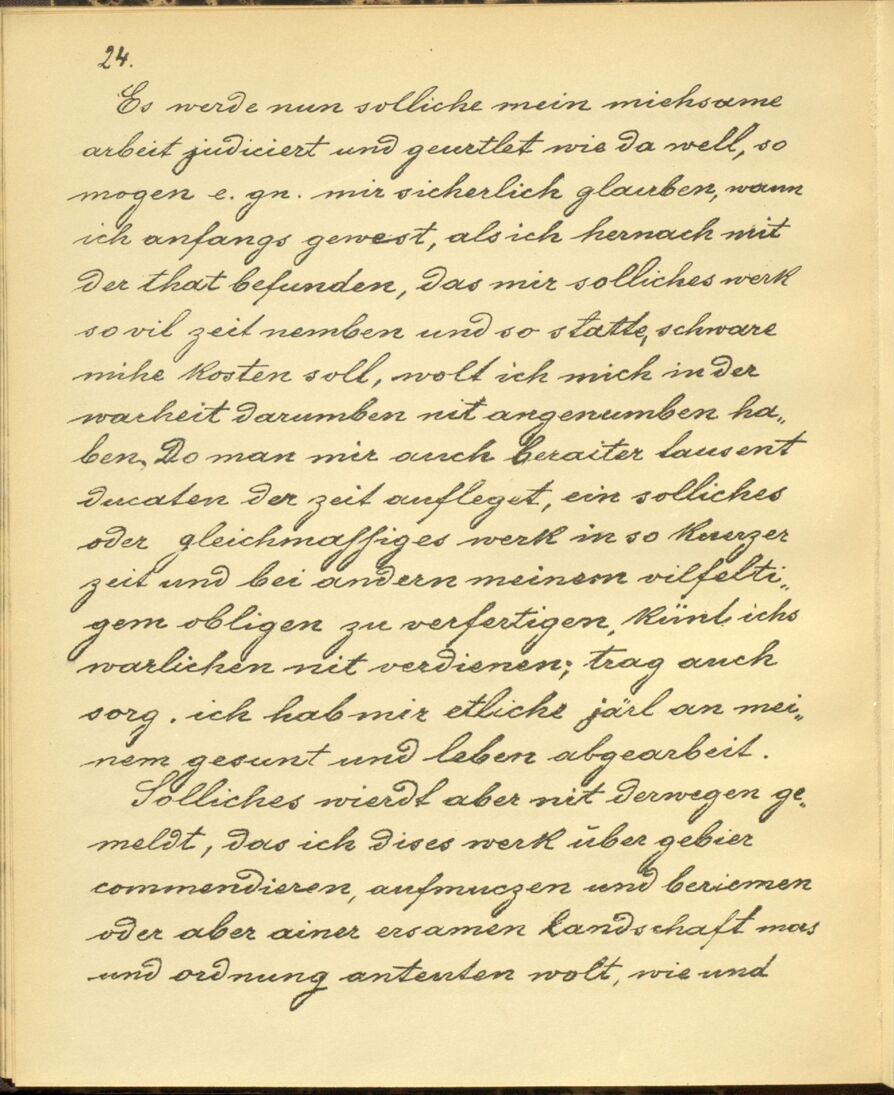 24.
Es werde nun solliche mein miehsame
arbeit judiciert und geurtlet wie da well, so
mogen e. gn. mir sicherlich glauben, wann
ich anfangs gewest, als ich hernach mit
der that befunden, das mir solliches werk
so vil zeit nemben und so statte, schware
mihe kosten soll, wolt ich mich in der
warheit darumben nit angenumben ha„
ben. Do man mir auch beraiter tausent
ducaten der zeit aufleget, ein solliches
oder gleichmassiges werk in so kuerzer
zeit und bei andern meinem vilfelti„
gem obligen zu verfertigen, künt ichs
warlichen nit verdienen; trag auch
sorg. ich hab mir etliche järl an mei„
nem gesunt und leben abgearbeit.
Solliches wierdt aber nit derwegen ge„
meldt, das ich dises werk über gebier
commendieren, aufmuczen und beriemen
oder aber ainer ersamen Landschaft mas
und ordnung anteuten wolt, wie und